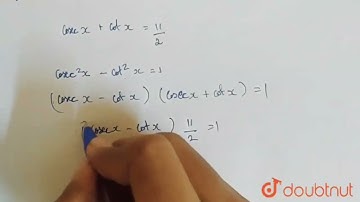 cosec x + cot x = 11/2
cosec²x - cot²x = 1
(cosec x - cot x) (cosec x + cot x) = 1
(cosec x - cot x) 11/2 = 1
doubtnut